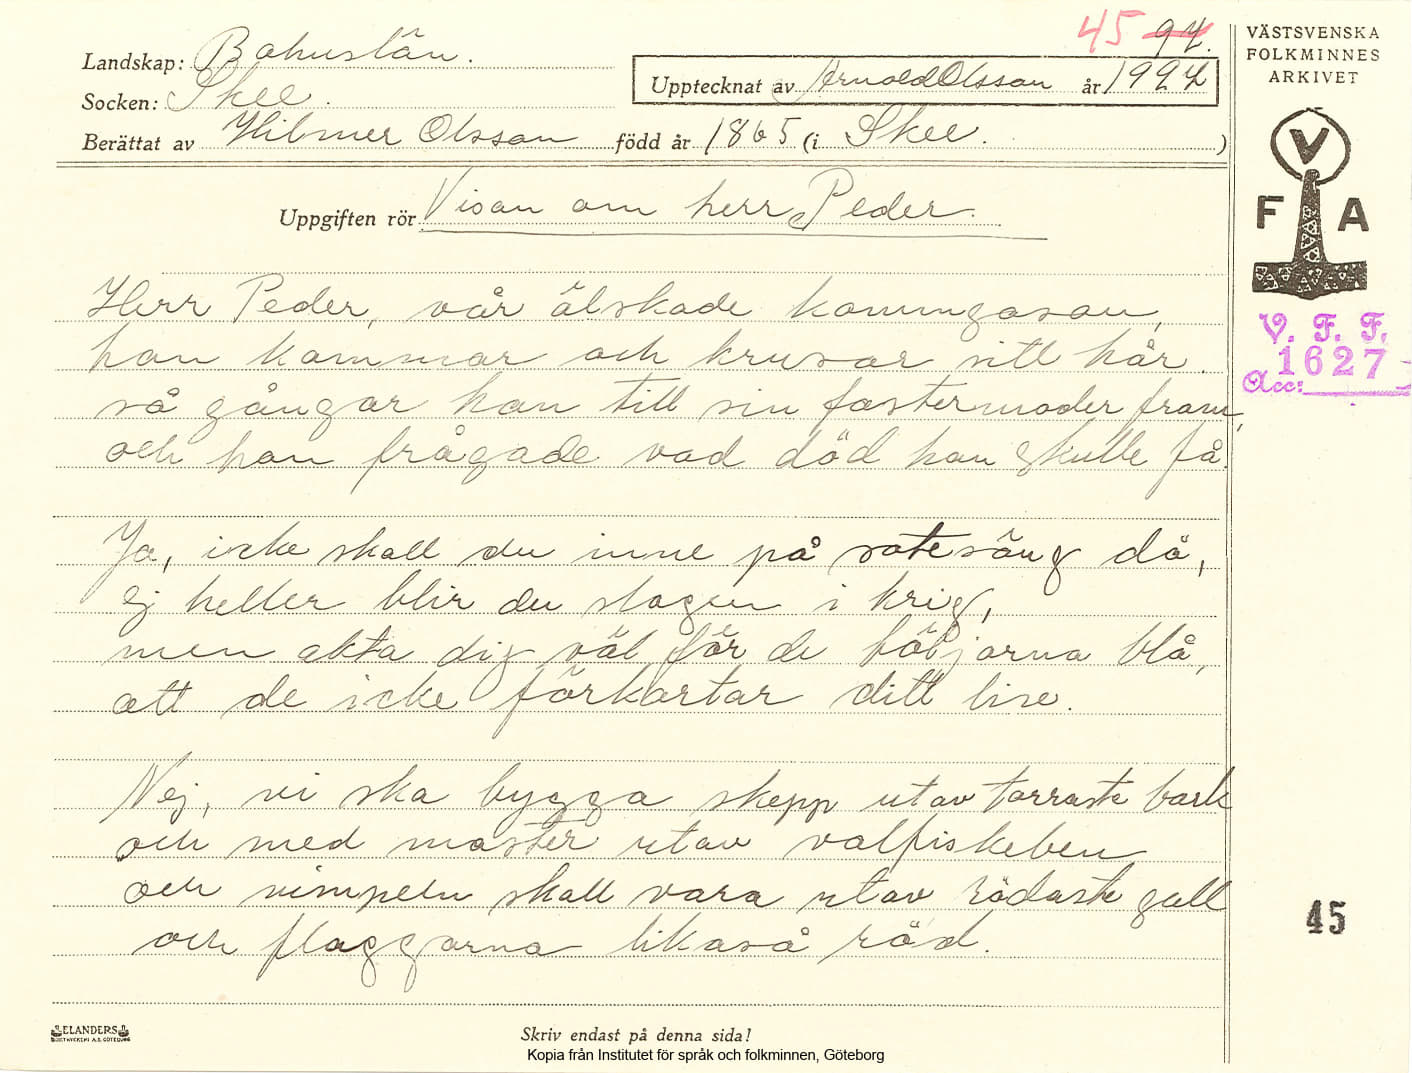 45 94.
Landskap: Bohuslän.
Socken: Skee.
Upptecknat av Arnold Olsson år 1924
Berättat av Hilmer Olsson född år 1865 (i Skee. )
VÄSTSVENSKA
FOLKMINNES
ARKIVET
V
F A
V. F. F.
1627
Acc:
Uppgiften rör Visan om herr Peder.
Herr Peder, vår älskade konungason,
han kammar och krusar sitt hår.
så gångar han till sin fostermoder fram,
och han frågade vad död han skulle få.
Ja, icke skall du inne på sotesäng dö,
ej heller blir du slagen i krig,
men akta dig väl för de böljorna blå,
att de icke förkortar ditt live.
Nej, vi ska bygga skepp utav torraste bark
och med master utav valfiskeben
och vimpeln skall vara utav rödaste gull
och flaggorna likaså röd.
45
ELANDERS
BOKTRYCKERI A.B. GÖTEBORG
Skriv endast på denna sida!
Kopia från Institutet för språk och folkminnen, Göteborg